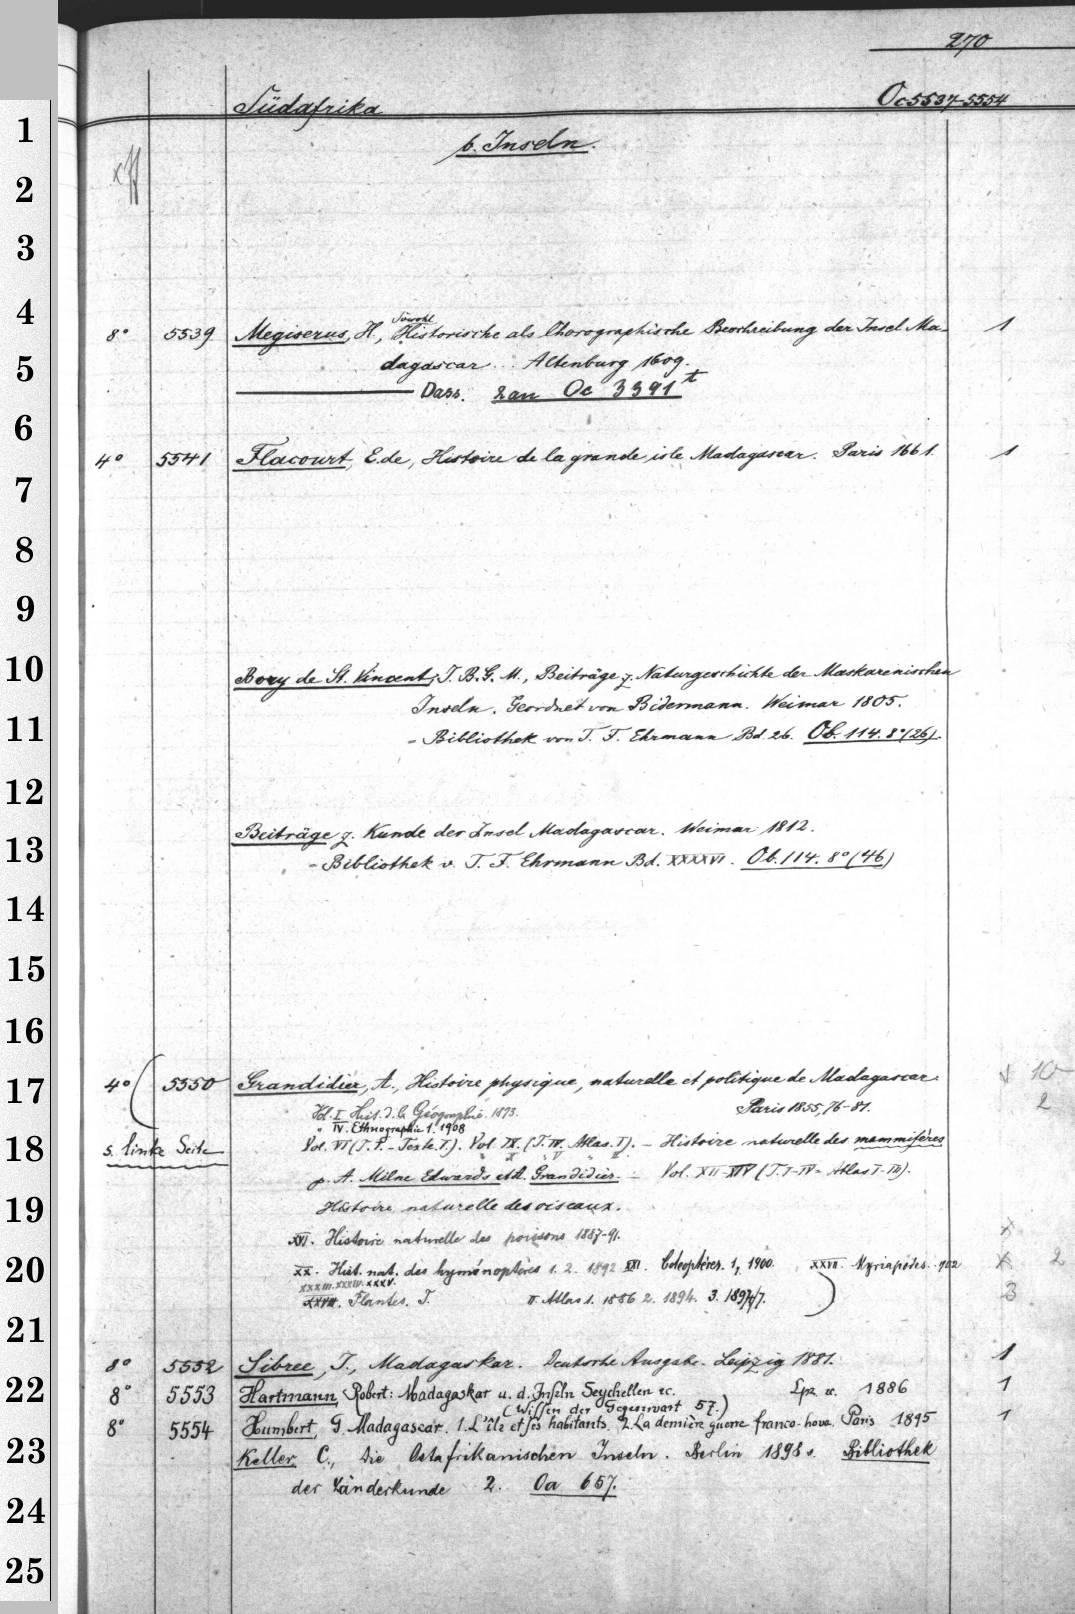 270
Südafrika Oc 5537-5554
b. Inseln.
1
2
3
4
8° 5539 Megiserus, H., Sowohl Historische als Chorographische Beschreibung der Insel Ma- 1
5
dagascar... Altenburg 1609.
Dass. 2 an Oc 3391 t
6
4° 5541 Flacourt, E. de, Histoire de la grande isle Madagascar. Paris 1661. 1
7
8
9
10
Bory de St. Vincent, J. B. G. M., Beiträge z. Naturgeschichte der Maskarenischen
Inseln. Geordnet von Bidermann. Weimar 1805.
11
- Bibliothek von T. F. Ehrmann Bd. 26. Ob. 114. 8° (26).
12
Beiträge z. Kunde der Insel Madagascar. Weimar 1812.
13
- Bibliothek v. T. F. Ehrmann Bd. XXXXVI. Ob. 114. 8° (46)
14
15
16
17
4° 5550 Grandidier, A., Histoire physique, naturelle et politique de Madagascar. 10
Vol. I Hist. d. la Géographie. 1873. Paris 1855, 76-81. 2
" IV. Ethnographie 1. 1908
18
s. linke Seite Vol. VI (T. I. - Texte. I.). Vol. IX. (T. IV. Atlas. I). - Histoire naturelle des mammifères
p. A. Milne Edwards et A. Grandidier. - Vol. XII-XIV (T. I-IV = Atlas I-III).
19
Histoire naturelle des oiseaux.
XVI. Histoire naturelle des poissons 1887-91.
20
XX. Hist. nat. des hyménoptères 1. 2. 1892 XXI. Coléoptères. 1, 1900. XXVII. Myriapodes. 902 2
XXXIII. XXXIV. XXXV.
XXVIII. Plantes. T. II Atlas 1. 1886 2. 1894. 3. 1894/7. 3
21
8° 5552 Sibree, J., Madagaskar. Deutsche Ausgabe. Leipzig 1881. 1
22
8° 5553 Hartmann, Robert: Madagaskar u. d. Inseln Seychellen etc. Lpz. 1886 1
(Wissen der Gegenwart 57.)
8° 5554 Humbert, G. Madagascar. 1. L'île et ses habitants. 2. La dernière guerre franco-hova. Paris 1895 1
23
Keller, C., Die Ostafrikanischen Inseln. Berlin 1898. Bibliothek
der Länderkunde 2. Oa 657.
24
25